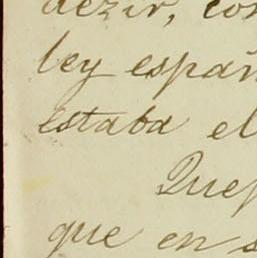 dezir, con
ley españ
estaba el
Quep
que en s